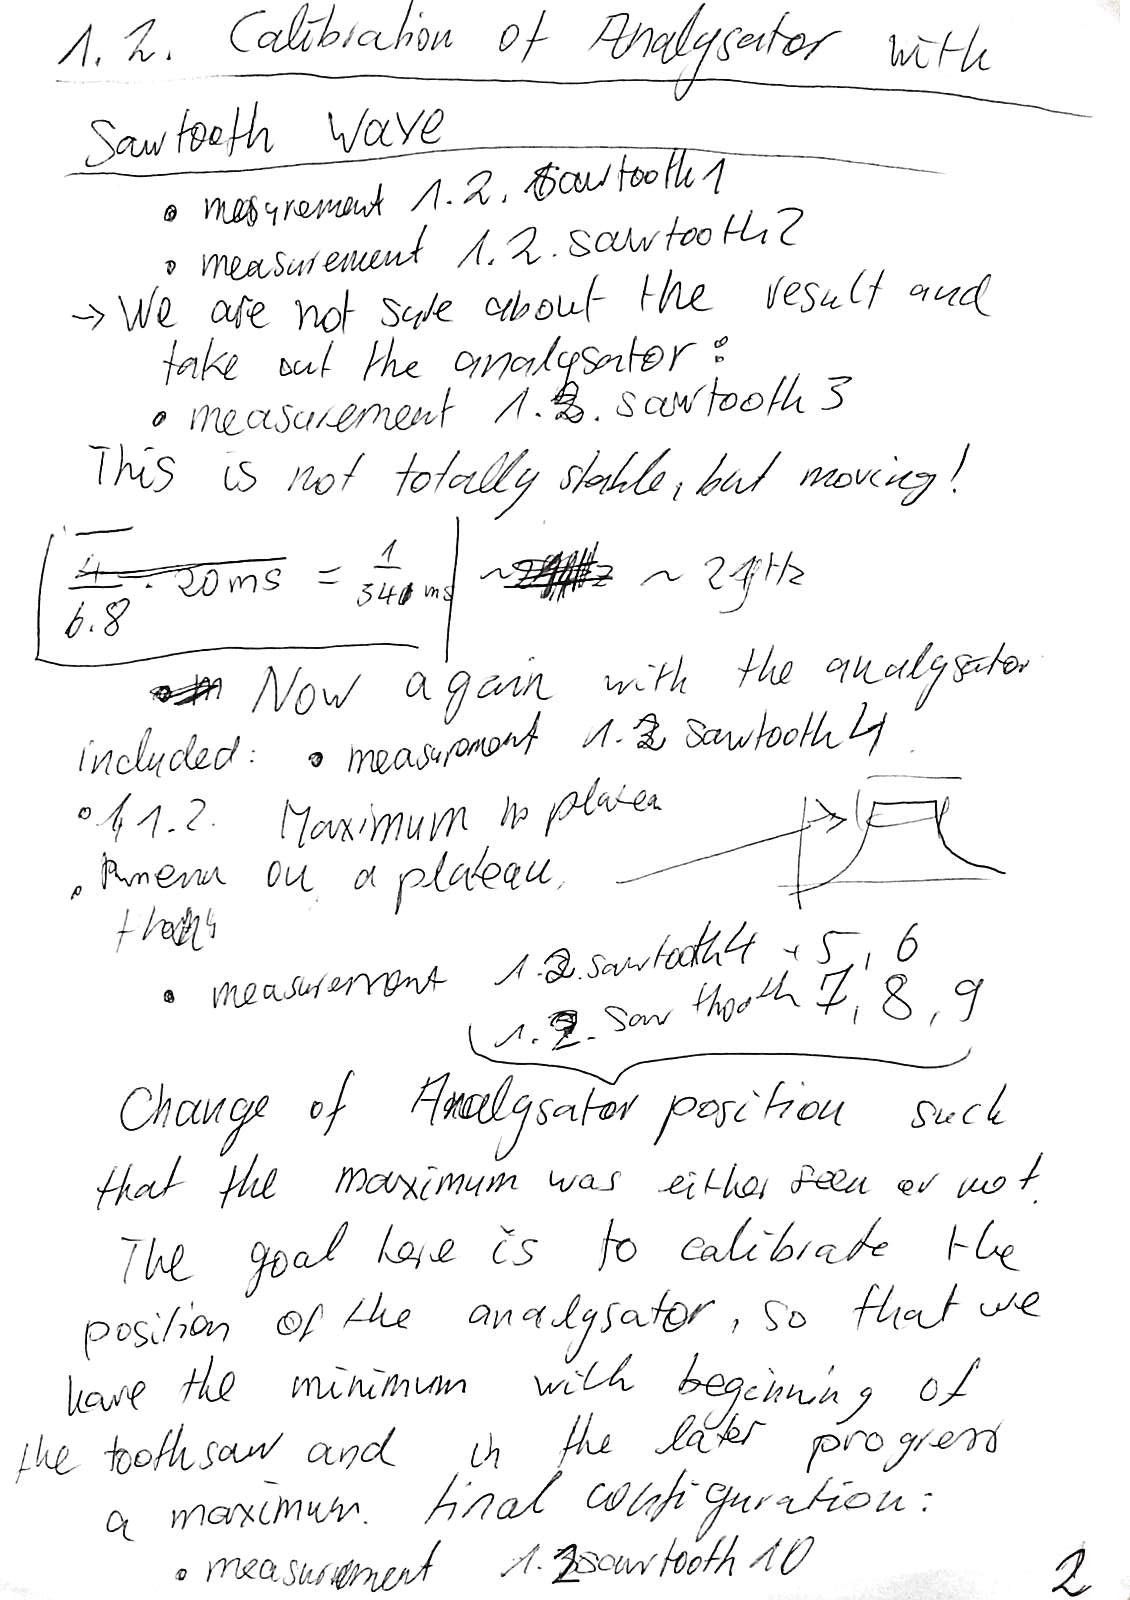 1.2. Calibration of Analysator with
Sawtooth Wave
• measurement 1.2. Sawtooth1
• measurement 1.2. sawtooth2
→ We are not sure about the result and
take out the analysator:
• measurement 1.2. sawtooth3
This is not totally stable, but moving!
4/6.8 · 20ms = 1/340 ms ~ ~ 29Hz
Now again with the analysator
included: • measurement 1.2 sawtooth4
• 1.2. Maximum is platea
• on a plateau.
• measurement 1.2. sawtooth4 + 5, 6
1.2. Saw thooth 7, 8, 9
Change of Analysator position such
that the maximum was either seen or not.
The goal here is to calibrate the
position of the analysator, so that we
have the minimum with beginning of
the toothsaw and in the later progress
a maximum. final configuration:
• measurement 1.2sawtooth10
2